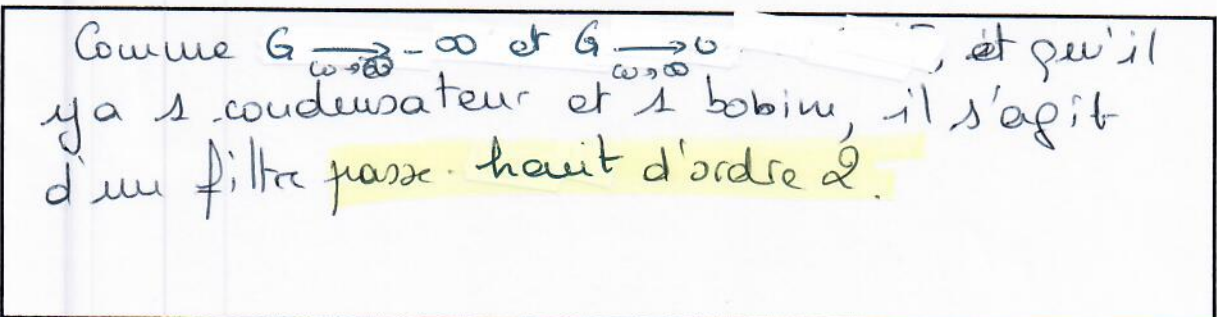 Comme G ⟶ -∞ et G ⟶ 0, et qu'il
ω→0 ω→∞
y a 1 condensateur et 1 bobine, il s'agit
d'un filtre passe-haut d'ordre 2.